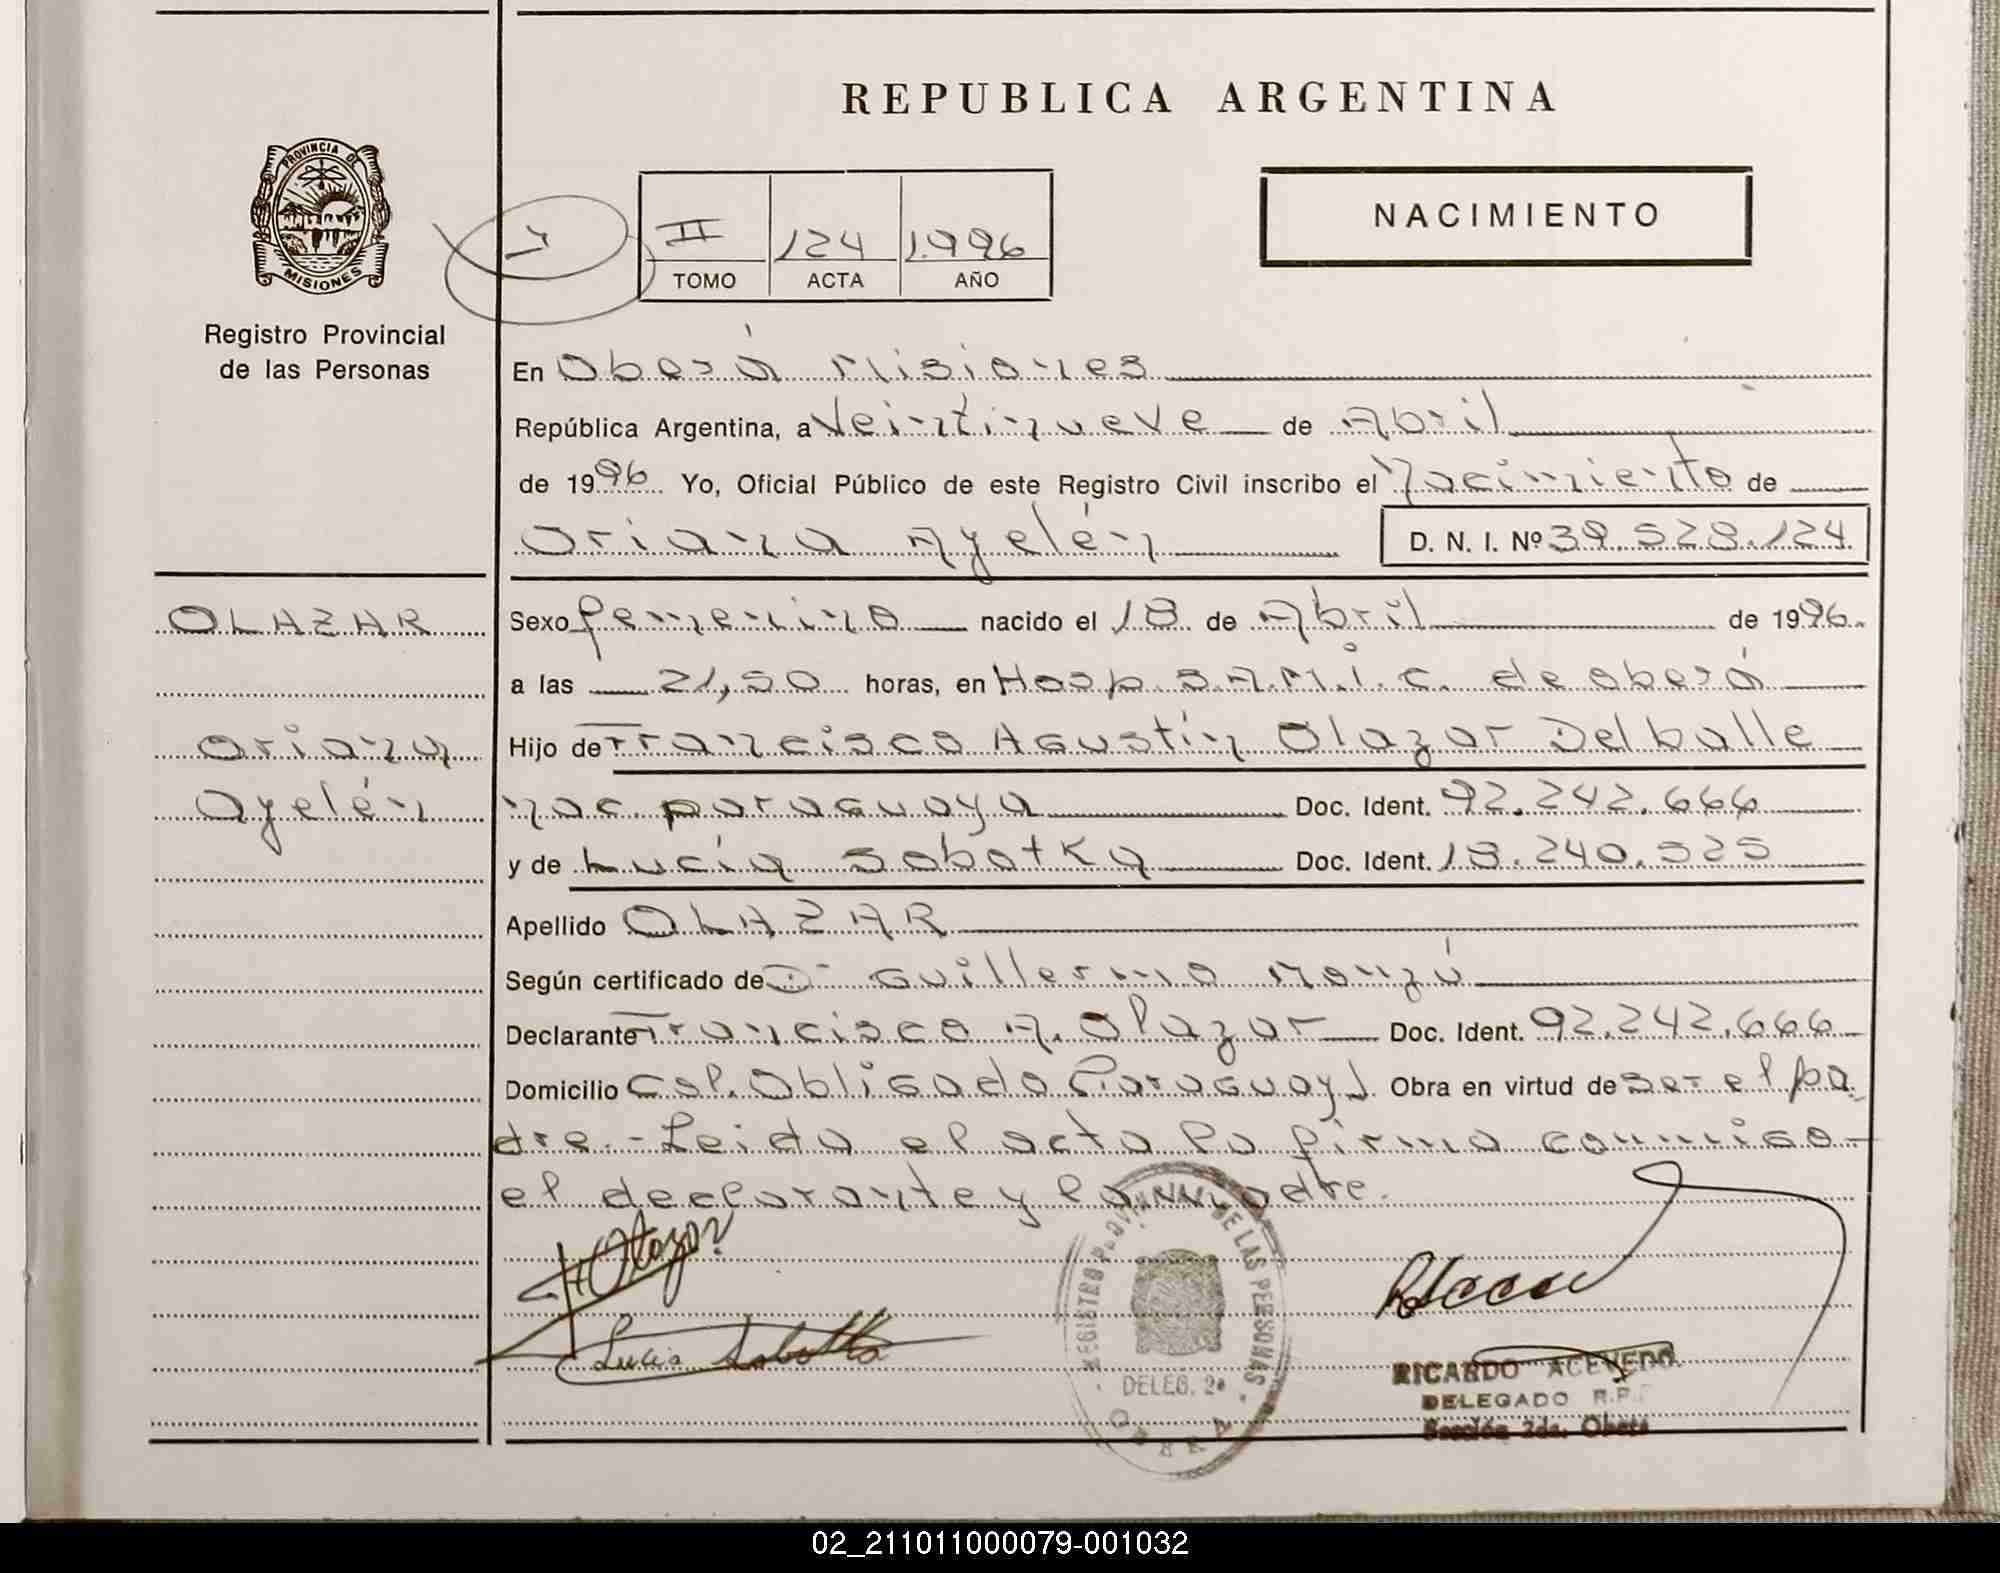 REPUBLICA ARGENTINA
PROVINCIA DE
MISIONES
Registro Provincial
de las Personas
II 124 1.996
TOMO ACTA AÑO
NACIMIENTO
En Oberá Misiones
República Argentina, a Veintinueve de Abril
de 1996 Yo, Oficial Público de este Registro Civil inscribo el Nacimiento de
Oriana Ayelén D. N. I. Nº 39.528.124
OLAZAR
Oriana
Ayelén
Sexo femenino nacido el 18 de Abril de 1996
a las 21,50 horas, en Hosp S.A.M.I.C. de Oberá
Hijo de Francisco Agustín Olazar Delballe
nac. paraguaya Doc. Ident. 92.242.666
y de Lucía Sobotka Doc. Ident. 18.240.525
Apellido OLAZAR
Según certificado de Dr Guillermo Monzú
Declarante Francisco A. Olazar Doc. Ident. 92.242.666
Domicilio Col. Obligado Paraguay Obra en virtud de ser el pa
dre.- Leida el acta la firma conmigo
el declarante y la madre.
Olazar
Lucia Sobotka
REGISTRO PROVINCIAL DE LAS PERSONAS
DELEG. 2a
OBERA
RICARDO ACEVEDO
DELEGADO R.P.
Sección 2da. Oberá
02_211011000079-001032